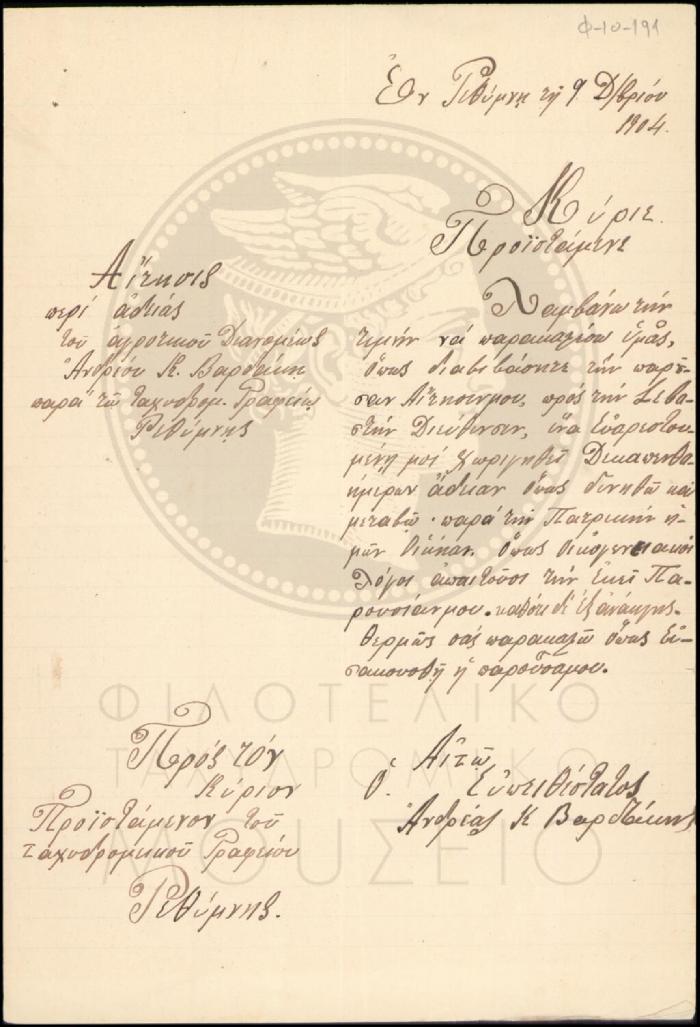 Φ-10-191
Ἐν Ρεθύμνῃ τῇ 9 Δ/βρίου
1904.
Κύριε
Προϊστάμενε
Αἴτησις
περί ἀδείας
τοῦ ἀγροτικοῦ Διανομέως
Ἀνδρέου Κ. Βαρδάκη
παρά τῶ ταχυδρομ. Γραφείῳ
Ρεθύμνης
Λαμβάνω τήν
τιμήν νά παρακαλέσω ὑμᾶς,
ὅπως διαβιβάσητε τήν παροῦ-
σαν Αἴτησινμου, πρός τήν Σεβα-
στήν Διεύθυνσιν, ἵνα Εὐαρεστου-
μένη μοί χωριγηθεῖ Δεκαπενθη-
ήμερον ἄδειαν ὅπως δυνηθῶ καί
μεταβῶ παρά τήν Πατρικήν ἡ-
μῶν οἰκίαν. ὅπως οἰκογενειακοί
λόγοι ἀπαιτοῦσι τήν ἐκεῖ Πα-
ρουσίανμου. καθότι δ' ἐξ ἀνάγκης.
θερμῶς σάς παρακαλῶ ὅπως Εἰ-
σακουσθῇ ἡ παροῦσαμου.
Πρός τόν
Κύριον
Προϊστάμενον τοῦ
ταχυδρομικοῦ Γραφείου
Ρεθύμνης.
Αἰτῶ
Ὁ Εὐπειθέστατος
Ἀνδρέας Κ Βαρδάκης
ΦΙΛΟΤΕΛΙΚΟ
ΤΑΧΥΔΡΟΜΙΚΟ
ΜΟΥΣΕΙΟ